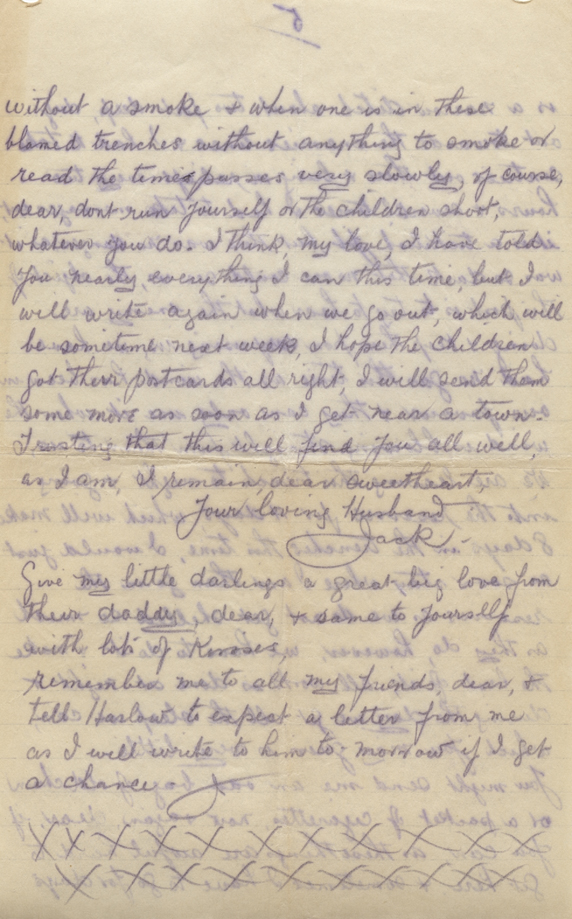 5
without a smoke & when one is in these
blamed trenches without anything to smoke or
read the time passes very slowly, of course,
dear, dont run yourself or the children short,
whatever you do. I think, my love, I have told
you nearly everything I can this time but I
will write again when we go out, which will
be sometime next week, I hope the children
got their postcards all right, I will send them
some more as soon as I get near a town.
Trusting that this will find you all well,
as I am, I remain, dear sweetheart,
Your loving Husband
Jack
Give my little darlings a great big love from
their daddy, dear, & same to yourself
with lots of Kisses,
remember me to all my friends, dear, &
tell Harlow to expect a letter from me
as I will write to him to morrow if I get
a chance
X X X X X X X X X X X X
X X X X X X X X X X X